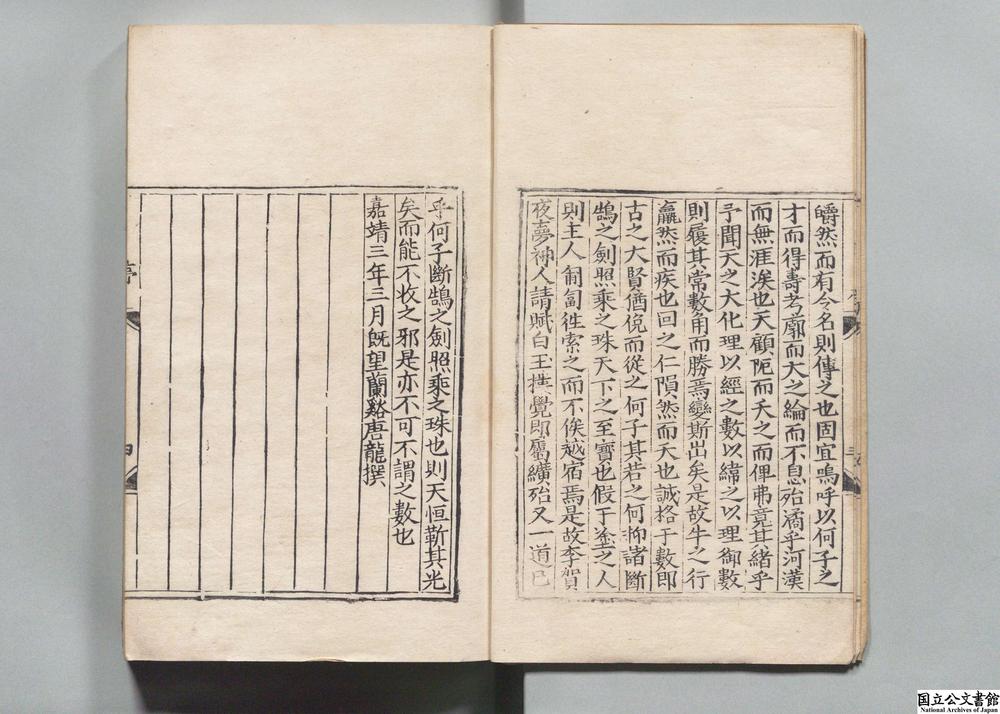 皭然而有今名則傳之也固宜嗚呼以何子之
才而得壽考廓而大之綸而不息殆濡乎河漢
而無涯涘也天顧阨而夭之而俾弗竟其緒乎
予聞天之大化理以經之數以緯之以理御數
則履其常數角而勝焉變斯出矣是故牛之行
羸然而疾也回之仁隕然而夭也誠格于數即
古之大賢循俛而從之何子其若之何抑諸斷
鵠之劍照乘之珠天下之至寶也假于塗之人
則主人匍匐徃索之而不俟越宿焉是故李賀
夜夢神人請賦白玉樓覺即屬纊殆又一道已
乎何子斷鵠之劍照乘之珠也則天恒靳其光
矣而能不收之邪是亦不可不謂之數也
嘉靖三年三月既望蘭谿唐龍撰
亭
四
国立公文書館
National Archives of Japan